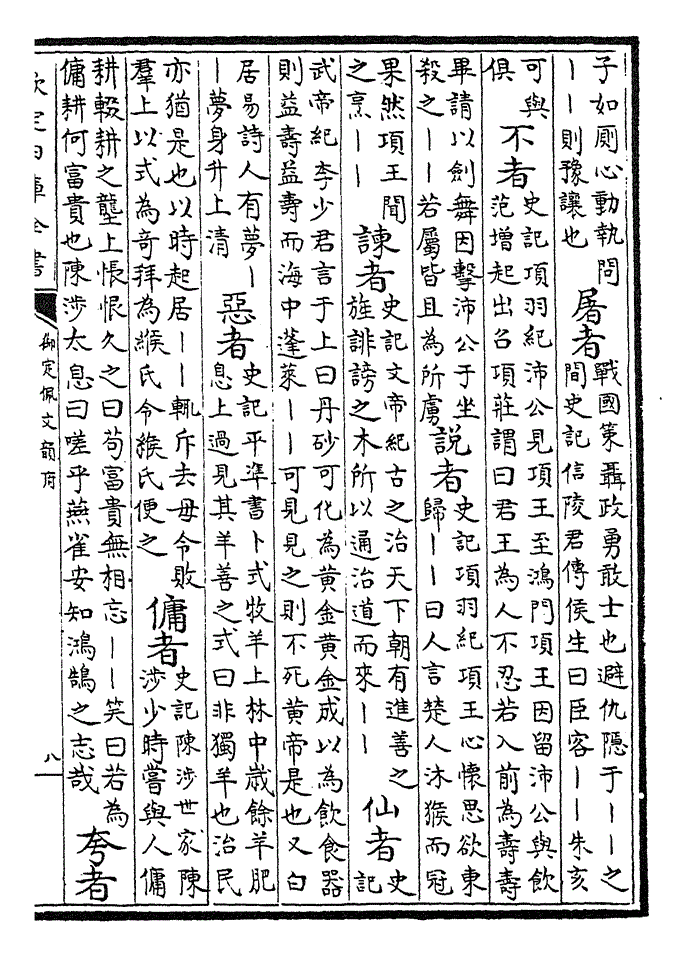 子如厠心動執問
丨丨則豫讓也
屠者
戰國策聶政勇敢士也避仇隱于丨丨之
間史記信陵君傳侯生曰臣客丨丨朱亥
可與
俱
不者
史記項羽紀沛公見項王至鴻門項王因留沛公與飲
范增起出召項莊謂曰君王為人不忍若入前為壽壽
畢請以劍舞因擊沛公于坐
殺之丨丨若屬皆且為所虜
說者
史記項羽紀項王心懷思欲東
歸丨丨曰人言楚人沐猴而冠
果然項王聞
之烹丨丨
諫者
史記文帝紀古之治天下朝有進善之
旌誹謗之木所以通治道而來丨丨
仙者
史
記
武帝紀李少君言于上曰丹砂可化為黃金黃金成以為飲食器
則益壽益壽而海中蓬萊丨丨可見見之則不死黃帝是也又白
居易詩人有夢丨
丨夢身升上清
惡者
史記平準書卜式牧羊上林中歲餘羊肥
息上過見其羊善之式曰非獨羊也治民
亦猶是也以時起居丨丨輒斥去毋令敗
羣上以式為奇拜為緱氏令緱氏便之
傭者
史記陳涉世家陳
涉少時嘗與人傭
耕輟耕之壟上悵恨久之曰苟富貴無相忘丨丨笑曰若為
傭耕何富貴也陳涉太息曰嗟乎燕雀安知鴻鵠之志哉
夸者
欽定四庫全書
御定佩文韻府
八